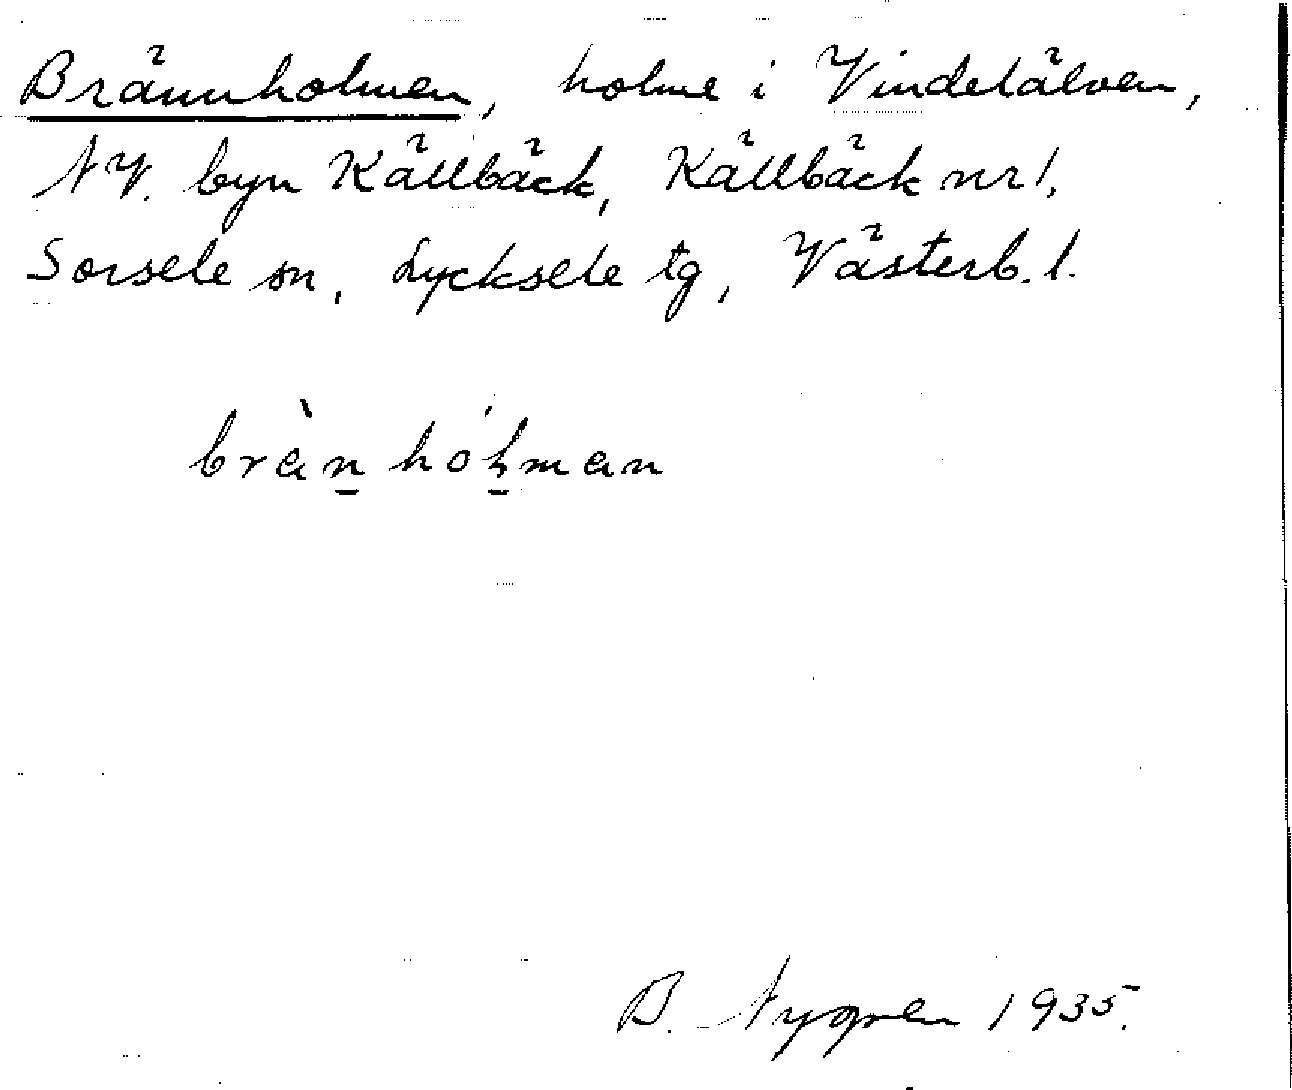 Brännholmen, holme i Vindelälven,
NV. byn Källbäck, Källbäck nr 1,
Sorsele sn, Lycksele tg, Västerb. l.
bràn̲ hóɫ̲man
B. Nygren 1935.